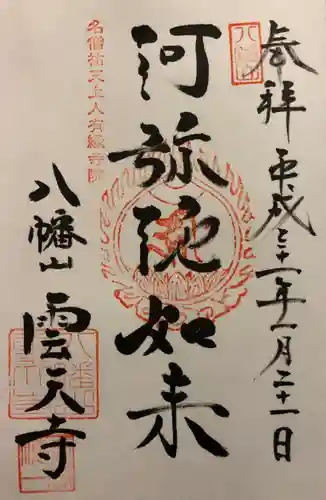 奉拝
平成三十一年一月二十一日
阿弥陀如来
名僧祐天上人有縁寺院
八幡山
雲天寺